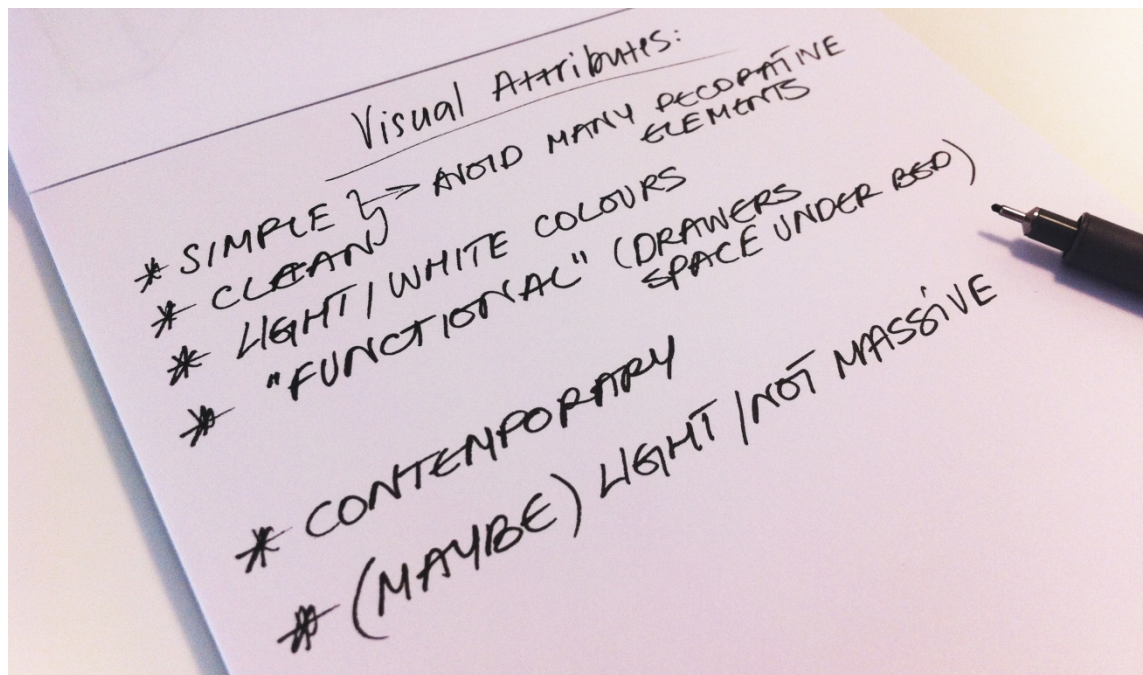 Visual Attributes:
* SIMPLE } → AVOID MANY DECORATIVE
ELEMENTS
* CLEAN
* LIGHT/WHITE COLOURS
* "FUNCTIONAL" (DRAWERS
SPACE UNDER BED)
* CONTEMPORARY
* (MAYBE) LIGHT/NOT MASSIVE